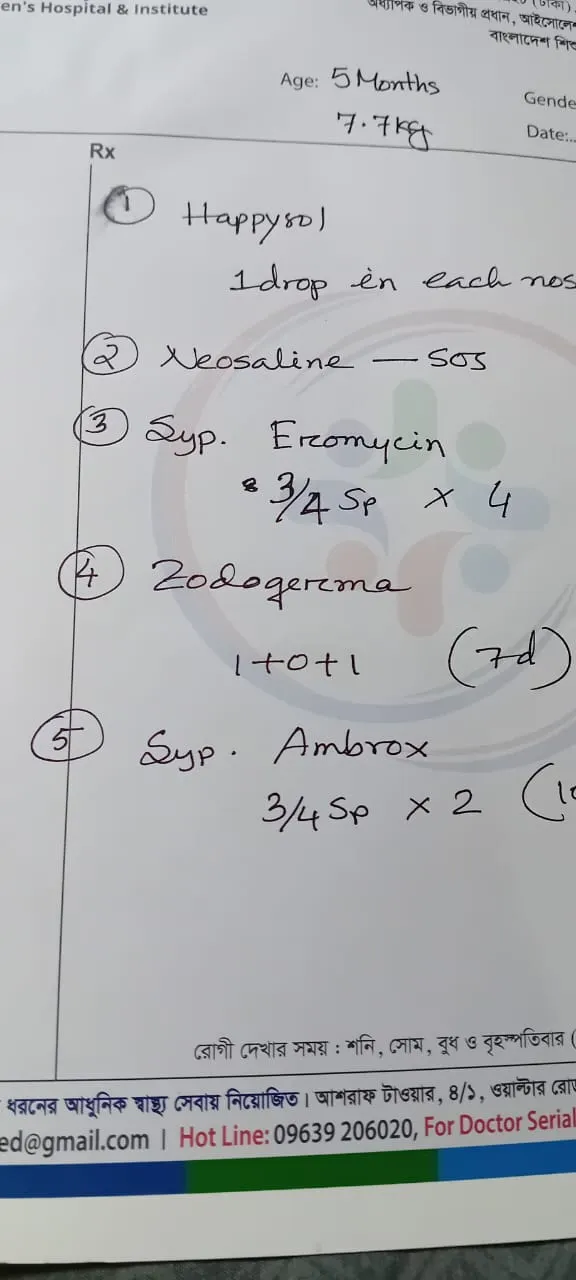 en's Hospital & Institute
অধ্যাপক ও বিভাগীয় প্রধান, আইসোলে
বাংলাদেশ শি
Age: 5 Months
Gende
7.7kg
Date:..
Rx
① Happysol
1 drop in each nos
② Neosaline — SOS
③ Syp. Eromycin
3/4 Sp × 4
④ Zodogerma
1+0+1 (7d)
⑤ Syp. Ambrox
3/4 Sp × 2 (1
রোগী দেখার সময় : শনি, সোম, বুধ ও বৃহস্পতিবার (
ধরনের আধুনিক স্বাস্থ্য সেবায় নিয়োজিত। আশরাফ টাওয়ার, ৪/১, ওয়ান্টার রো
ed@gmail.com | Hot Line: 09639 206020, For Doctor Serial